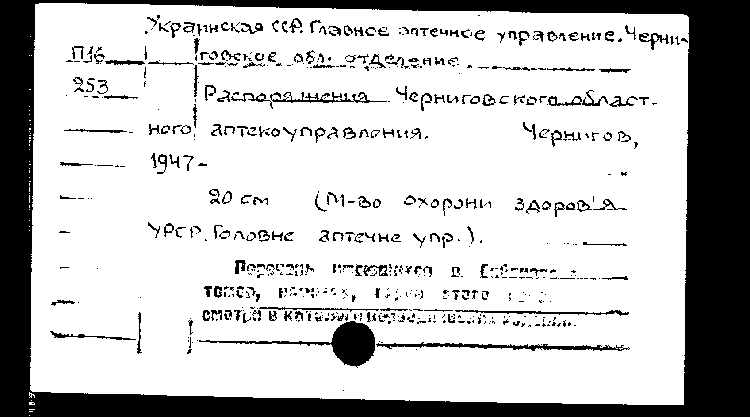 Украинская ССР. Главное аптечное управление. Черни-
П16 говское обл. отделение.
253 Распоряжения Черниговского област-
ного аптекоуправления. Чернигов,
1947-
20 см (М-во охорони здоров'я
УРСР. Головне аптечне упр.).
Перечень имеющихся в
томов, этого
смотри в каталоге